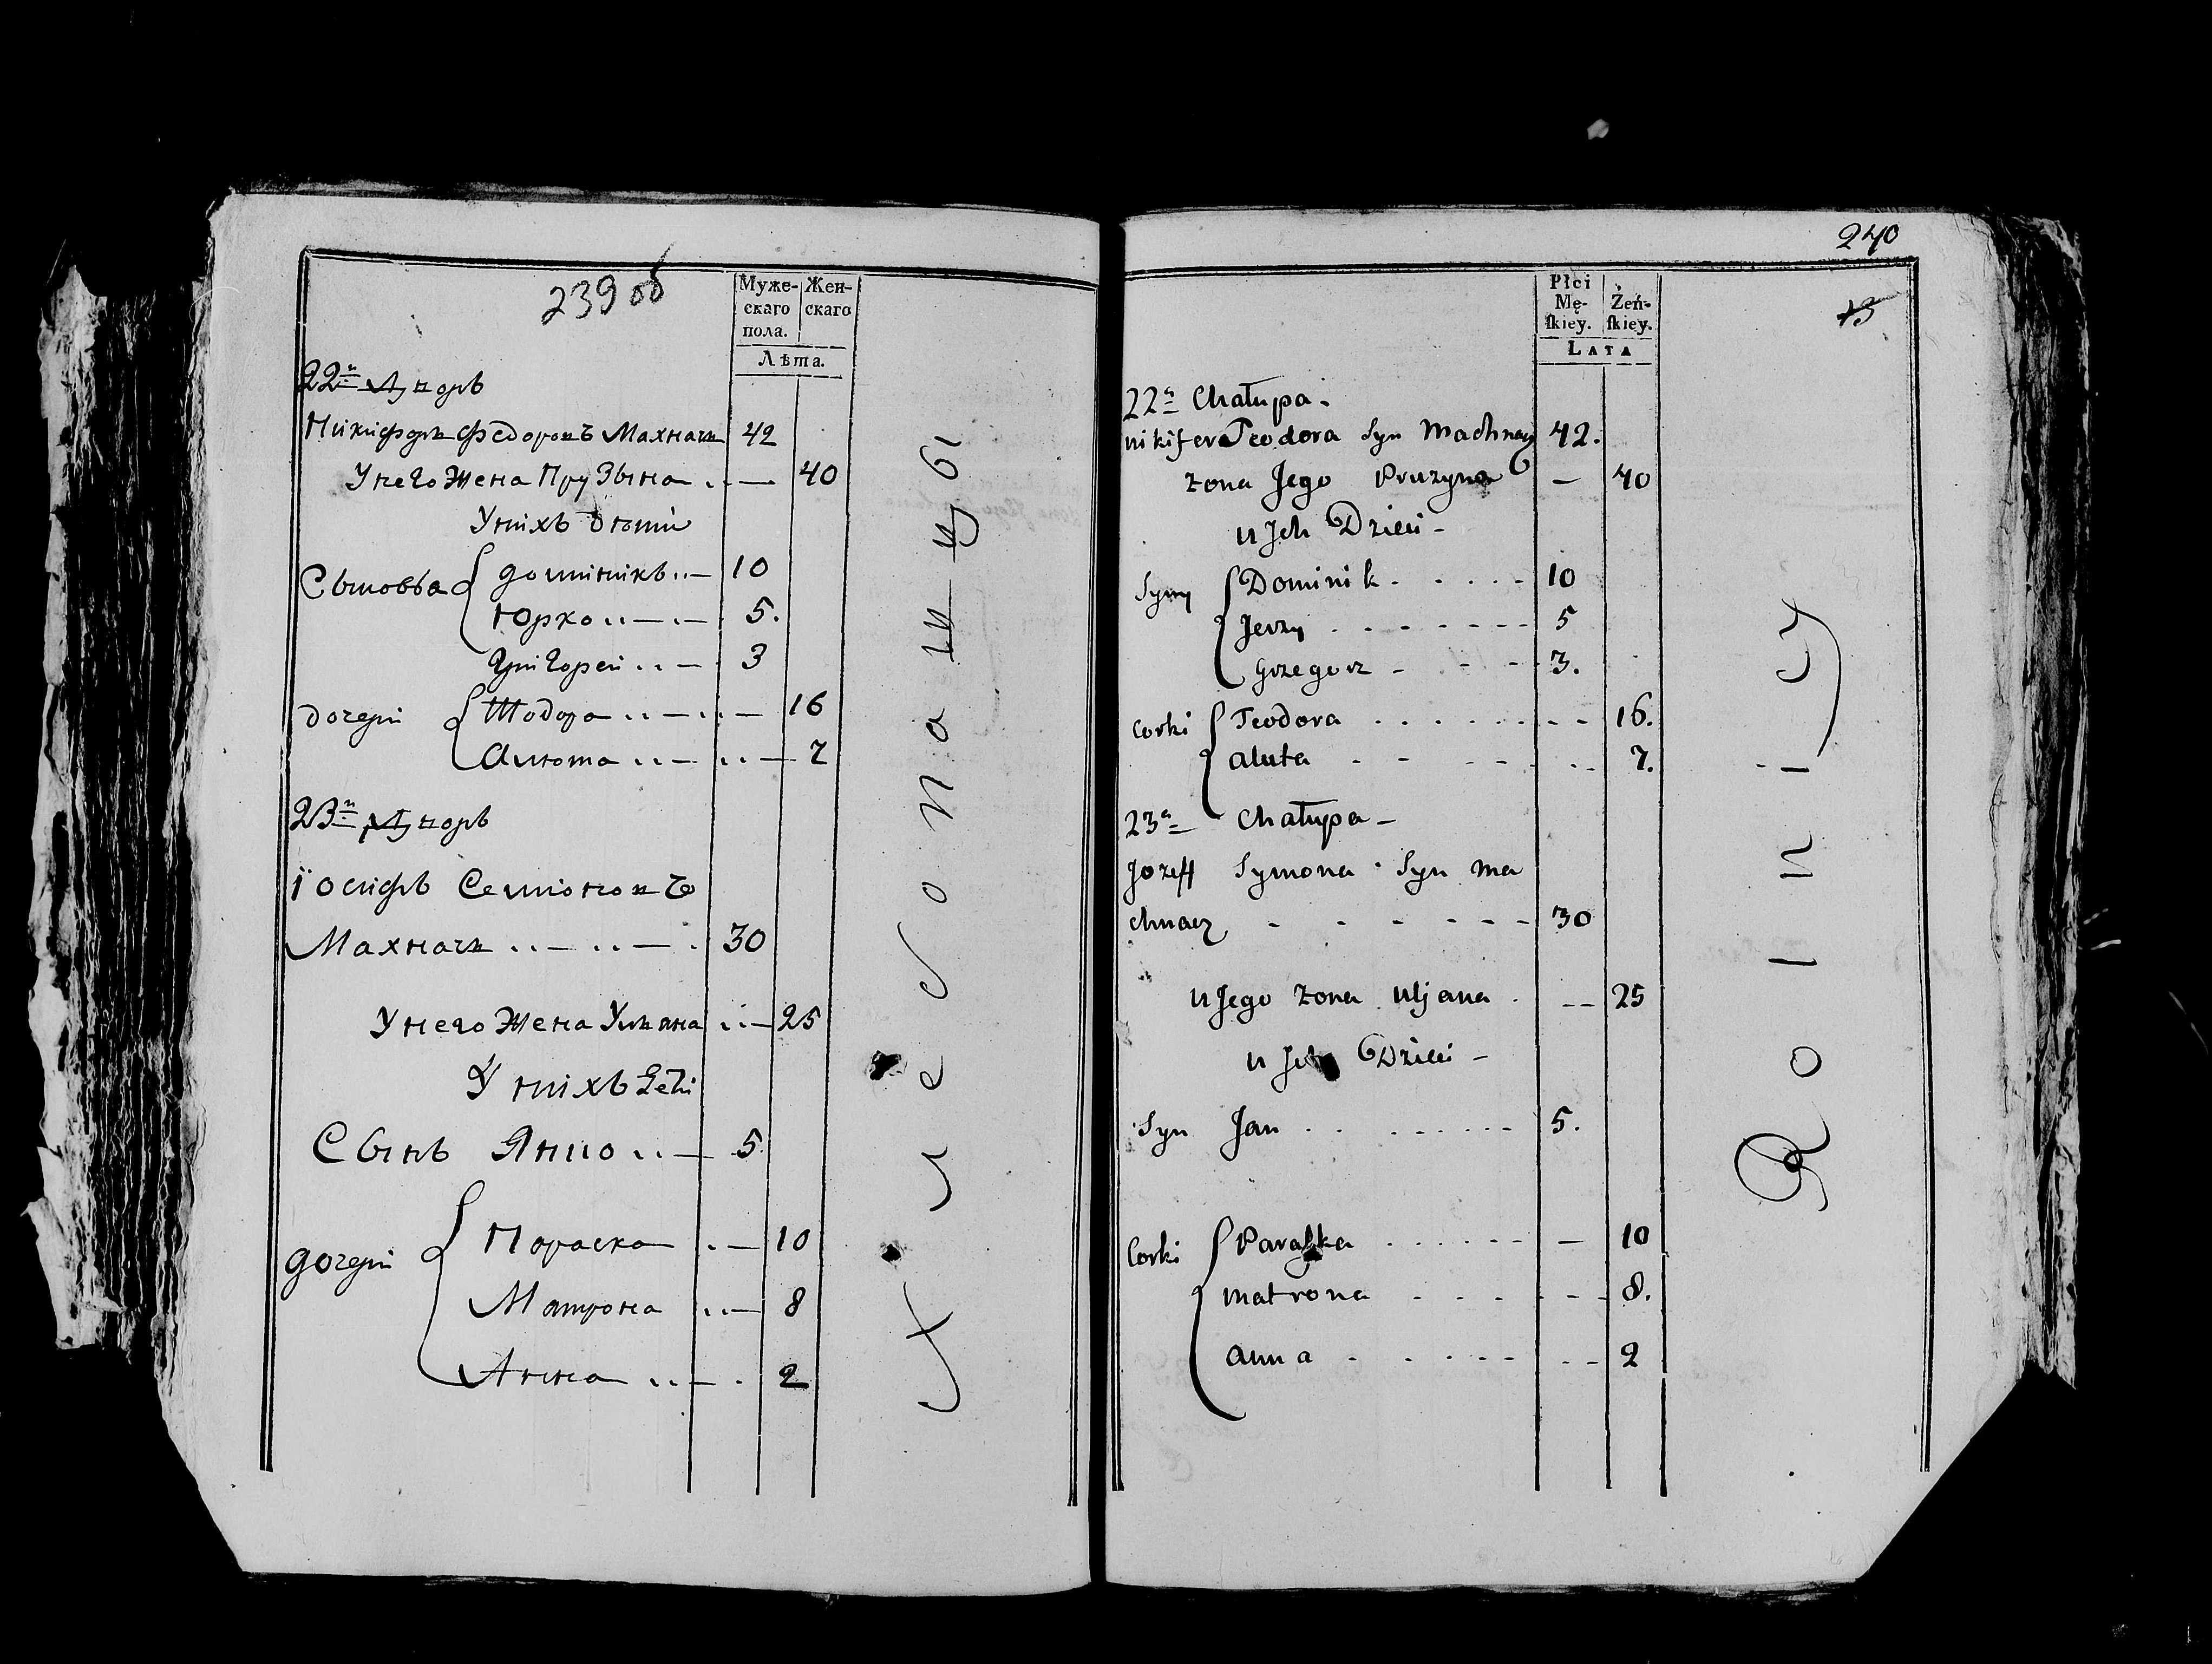 239 об
Муже-
скаго
пола.
Жен-
скаго
Лѣта.
22й Двोръ
Никифоръ Федоровъ Махначъ 42
У него Жена Прузына 40
У нихъ дѣти
Сыновья Доминикъ 10
Юрко 5.
Григорей 3
дочери Тодора 16
Алюта 7
23й Дворъ
Іосифъ Семіоновъ
Махначъ 30
У него Жена Ульяна 25
У нихъ дети
Сынъ Янко 5
дочери Параска 10
Матрона 8
Анна 2
240
13
Płci
Mę-
ſkiey.
Żeń-
ſkiey.
LATA
22a Chałupa.
nikifer Teodora Syn Machnacz 42.
żona Jego Pruzyna — 40
u Jch Dzieci -
Syny Dominik 10
Jerzy 5
Grzegorz 3.
Corki Teodora 16.
aluta 7.
23a Chałupa -
Jozeff Symona Syn Ma
chnacz 30
u Jego żona uljana 25
u Jch Dzieci -
Syn Jan 5.
Corki Paraska 10
matrona 8.
anna 2
Rolnicy